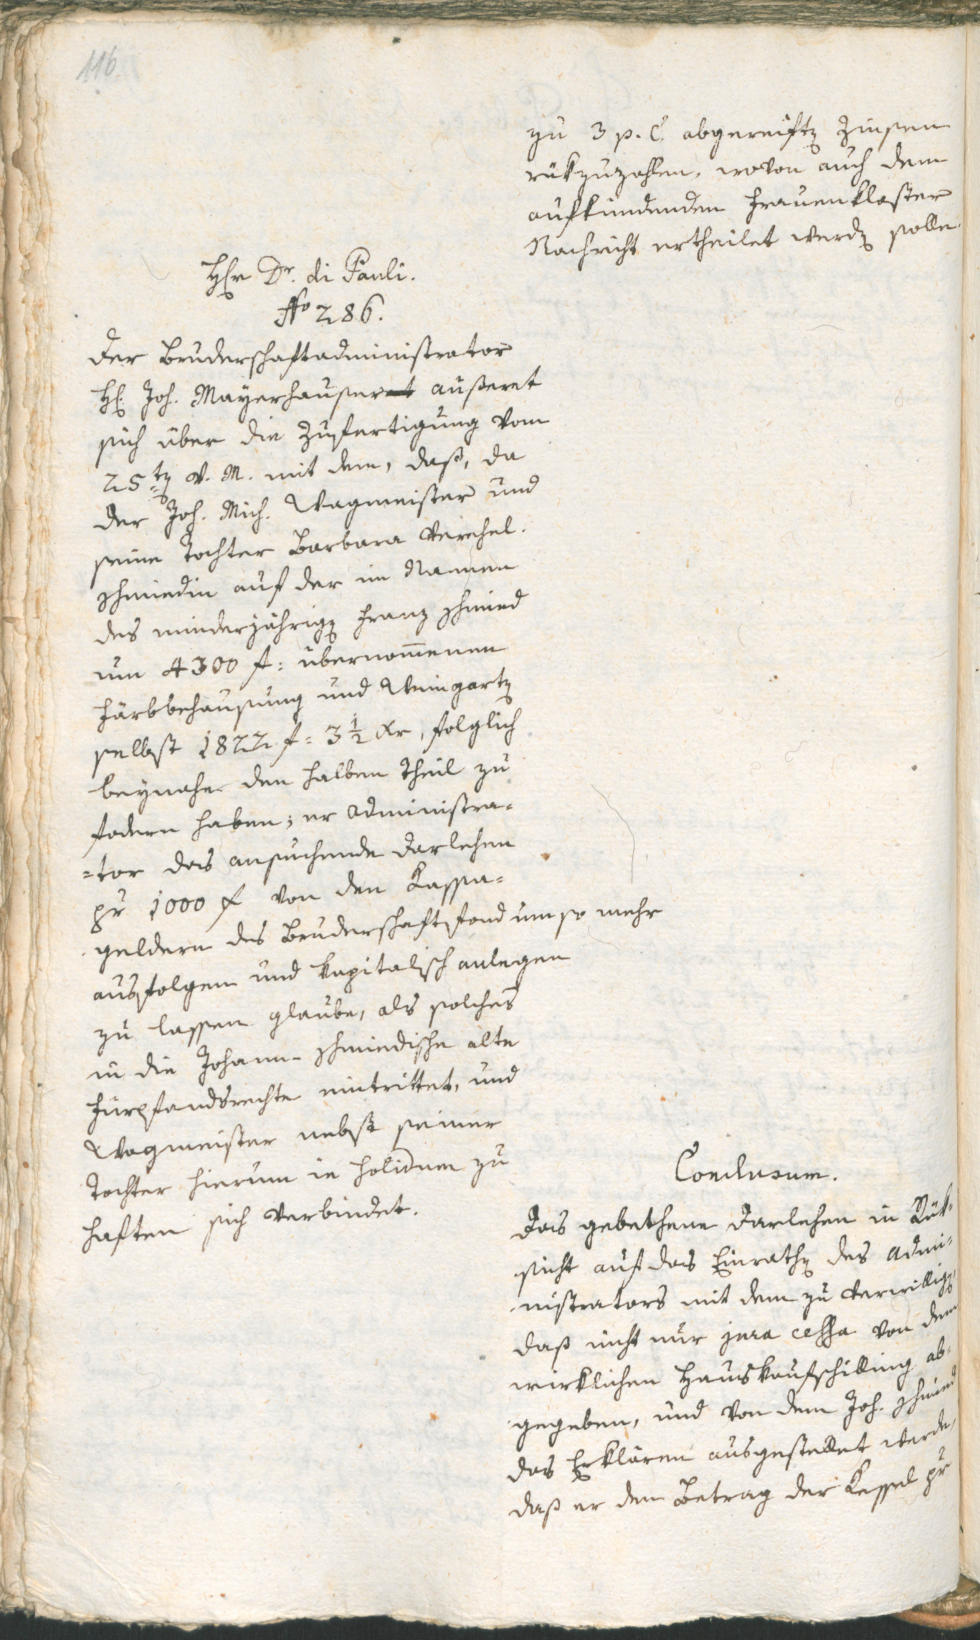 116
zu 3 p. C. abgereiften Zinsen
rükzuzahlen, wovon auch dem
aufkündenden Frauenkloster
Nachricht ertheilet werden solle.
Hr Dr. di Pauli.
No 286.
Der Bruderschaftadministrator
H: Joh. Mayrhauser äußeret
sich über die Zufertigung vom
25ten v. M. mit dem, daß, da
der Joh. Mich. Wagmeister und
seine Tochter Barbara verehel.
Schmiedin auf der im Namen
des minderjährigen Franz Schmied
um 4300 f: übernommenen
Färbbehausung und Weingarten
selbst 1822 f: 3 1/2 xr, folglich
beynahe den halben Theil zu
fodern haben; er Administra-
-tor das ansuchende Darlehen
pr 1000 f von den Kassa-
geldern des Bruderschaftsfond um so mehr
ausfolgen und kapitalisch anlegen
zu lassen glaube, als solches
in die Johann-Schmiedische alte
Fürpfandsrechte eintrittet, und
Wagmeister nebst seiner
Tochter hierum in solidum zu
haften sich verbindet.
Conclusum.
Das gebethene Darlehen in Rük-
sicht auf das Einrathen des Admi-
nistrators mit dem zu verwilligen,
daß nicht nur jura cessa von dem
wirklichen Hauskaufschilling ab-
gegeben, und von dem Joh. Schmied
das Erklären ausgestellet werde,
daß er den Betrag der Kessel pr